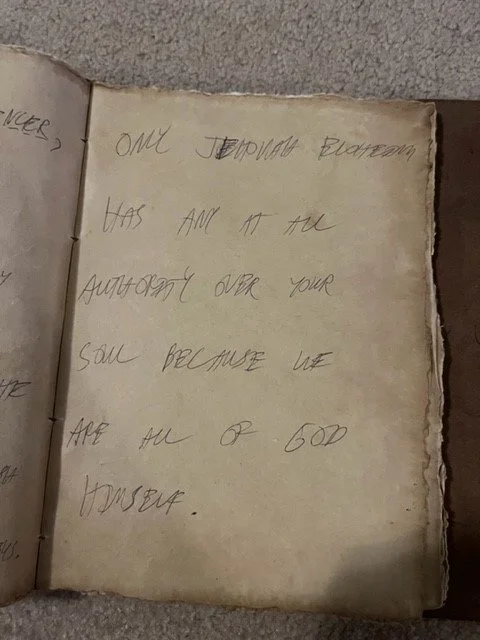 NCER,
ONLY JEHOVAH ELOHEEM
HAS ANY AT ALL
AUTHORITY OVER YOUR
SOUL BECAUSE WE
ARE ALL OF GOD
HIMSELF.